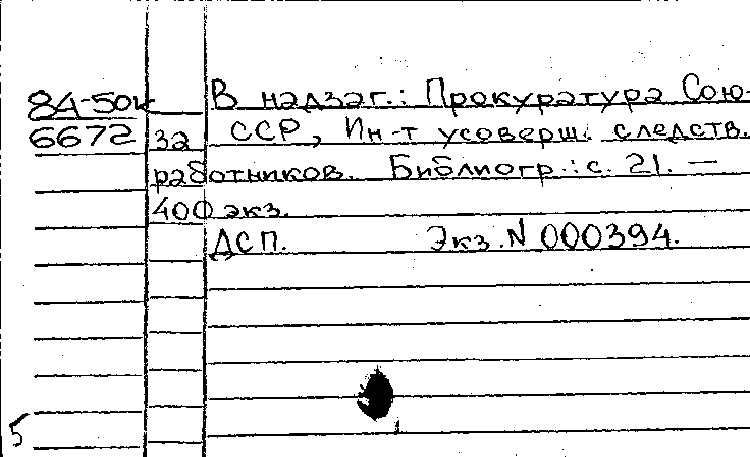 84-50к В надзаг.: Прокуратура Сою-
6672 за ССР, Ин-т усоверш. следств.
работников. Библиогр.: с. 21. —
400 экз.
ДСП. Экз. N 000394.
5